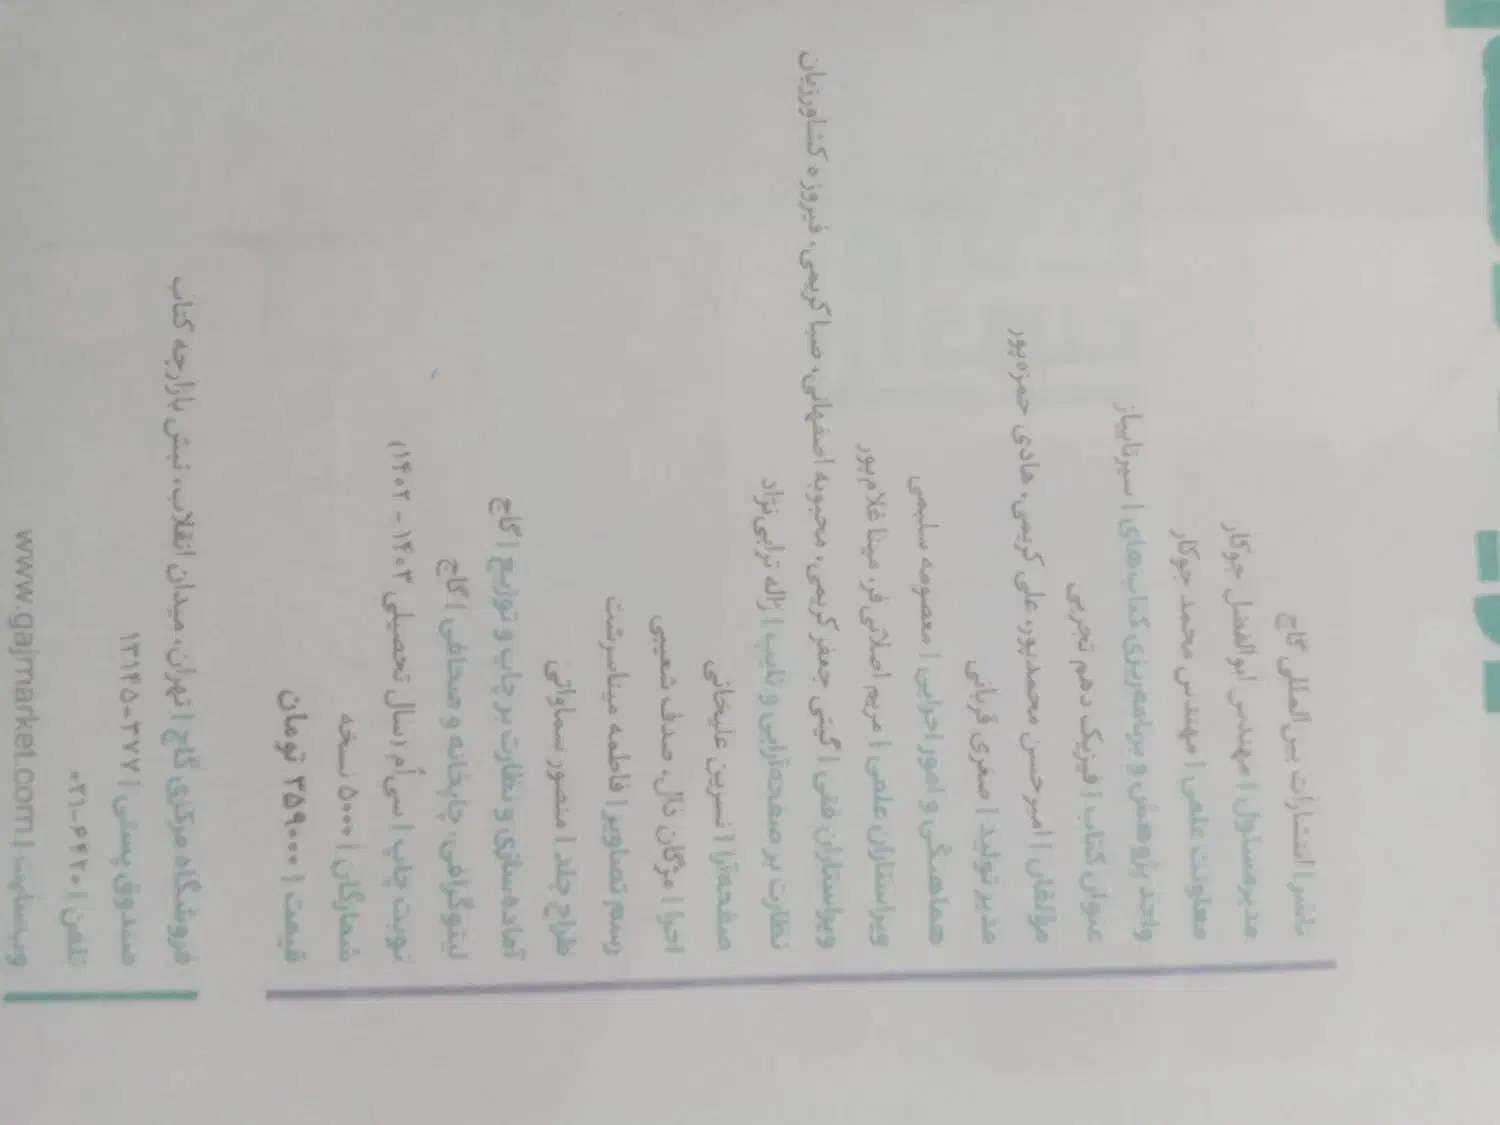 ناشر | انتشارات بین‌المللی گاج
مدیرمسئول | مهندس ابوالفضل جوکار
معاونت علمی | مهندس محمد جوکار
واحد پژوهش و برنامه‌ریزی کتاب‌های | سیرتاپیاز
عنوان کتاب | فیزیک دهم تجربی
مؤلفان | امیرحسن محمدپور، علی کریمی، هادی حمزه‌پور
مدیر تولید | صغری قربانی
هماهنگی و امور اجرایی | معصومه سلیمی
ویراستاران علمی | مریم اصلانی‌فر، مینا غلام‌پور
ویراستاران فنی | گیتی جعفرکریمی، محبوبه اصفهانی، صبا کریمی، فیروزه کشاورزیان
نظارت بر صفحه‌آرایی و تایپ | ژاله ترابی‌نژاد
صفحه‌آرا | نسرین علیخانی
اجرا | مژگان فال، صدف شعیبی
رسم تصاویر | فاطمه میناسرشت
طراح جلد | منصور سماواتی
آماده‌سازی و نظارت بر چاپ و توزیع | گاج
لیتوگرافی، چاپخانه و صحافی | گاج
نوبت چاپ | سی‌اُم (سال تحصیلی ۱۴۰۳ - ۱۴۰۲)
شمارگان | ۵۰۰۰ نسخه
قیمت | ۳۵۹۰۰۰ تومان
فروشگاه مرکزی گاج | تهران، میدان انقلاب، نبش بازارچه کتاب
صندوق پستی | ۳۷۷-۱۳۱۴۵
تلفن | ۶۴۲۰-۰۲۱
وب‌سایت | www.gajmarket.com